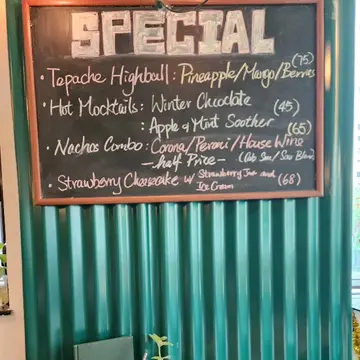 SPECIAL
(75)
• Tepache Highball : Pineapple/Mango/Berries
• Hot Mocktails : Winter Chocolate (45)
Apple & Mint Soother
(65)
• Nachos Combo : Corona/Peroni/House Wine
— Half Price — (Cab Sau/Sau Blanc)
• Strawberry Cheesecake w/ Strawberry Jam and Ice Cream (68)